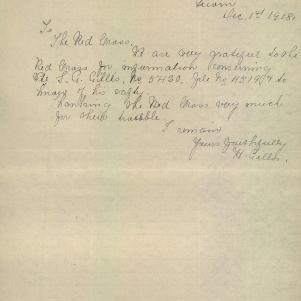 Dec. 1st 1918.
To
The Red Cross,
We are very grateful to the
Red Cross for information concerning
Pte S. G. Gillis, No 5430. File No
to
know of his safty.
Thanking the Red Cross very much
for their trouble
I remain
Yours faithfully
H. Gillis.